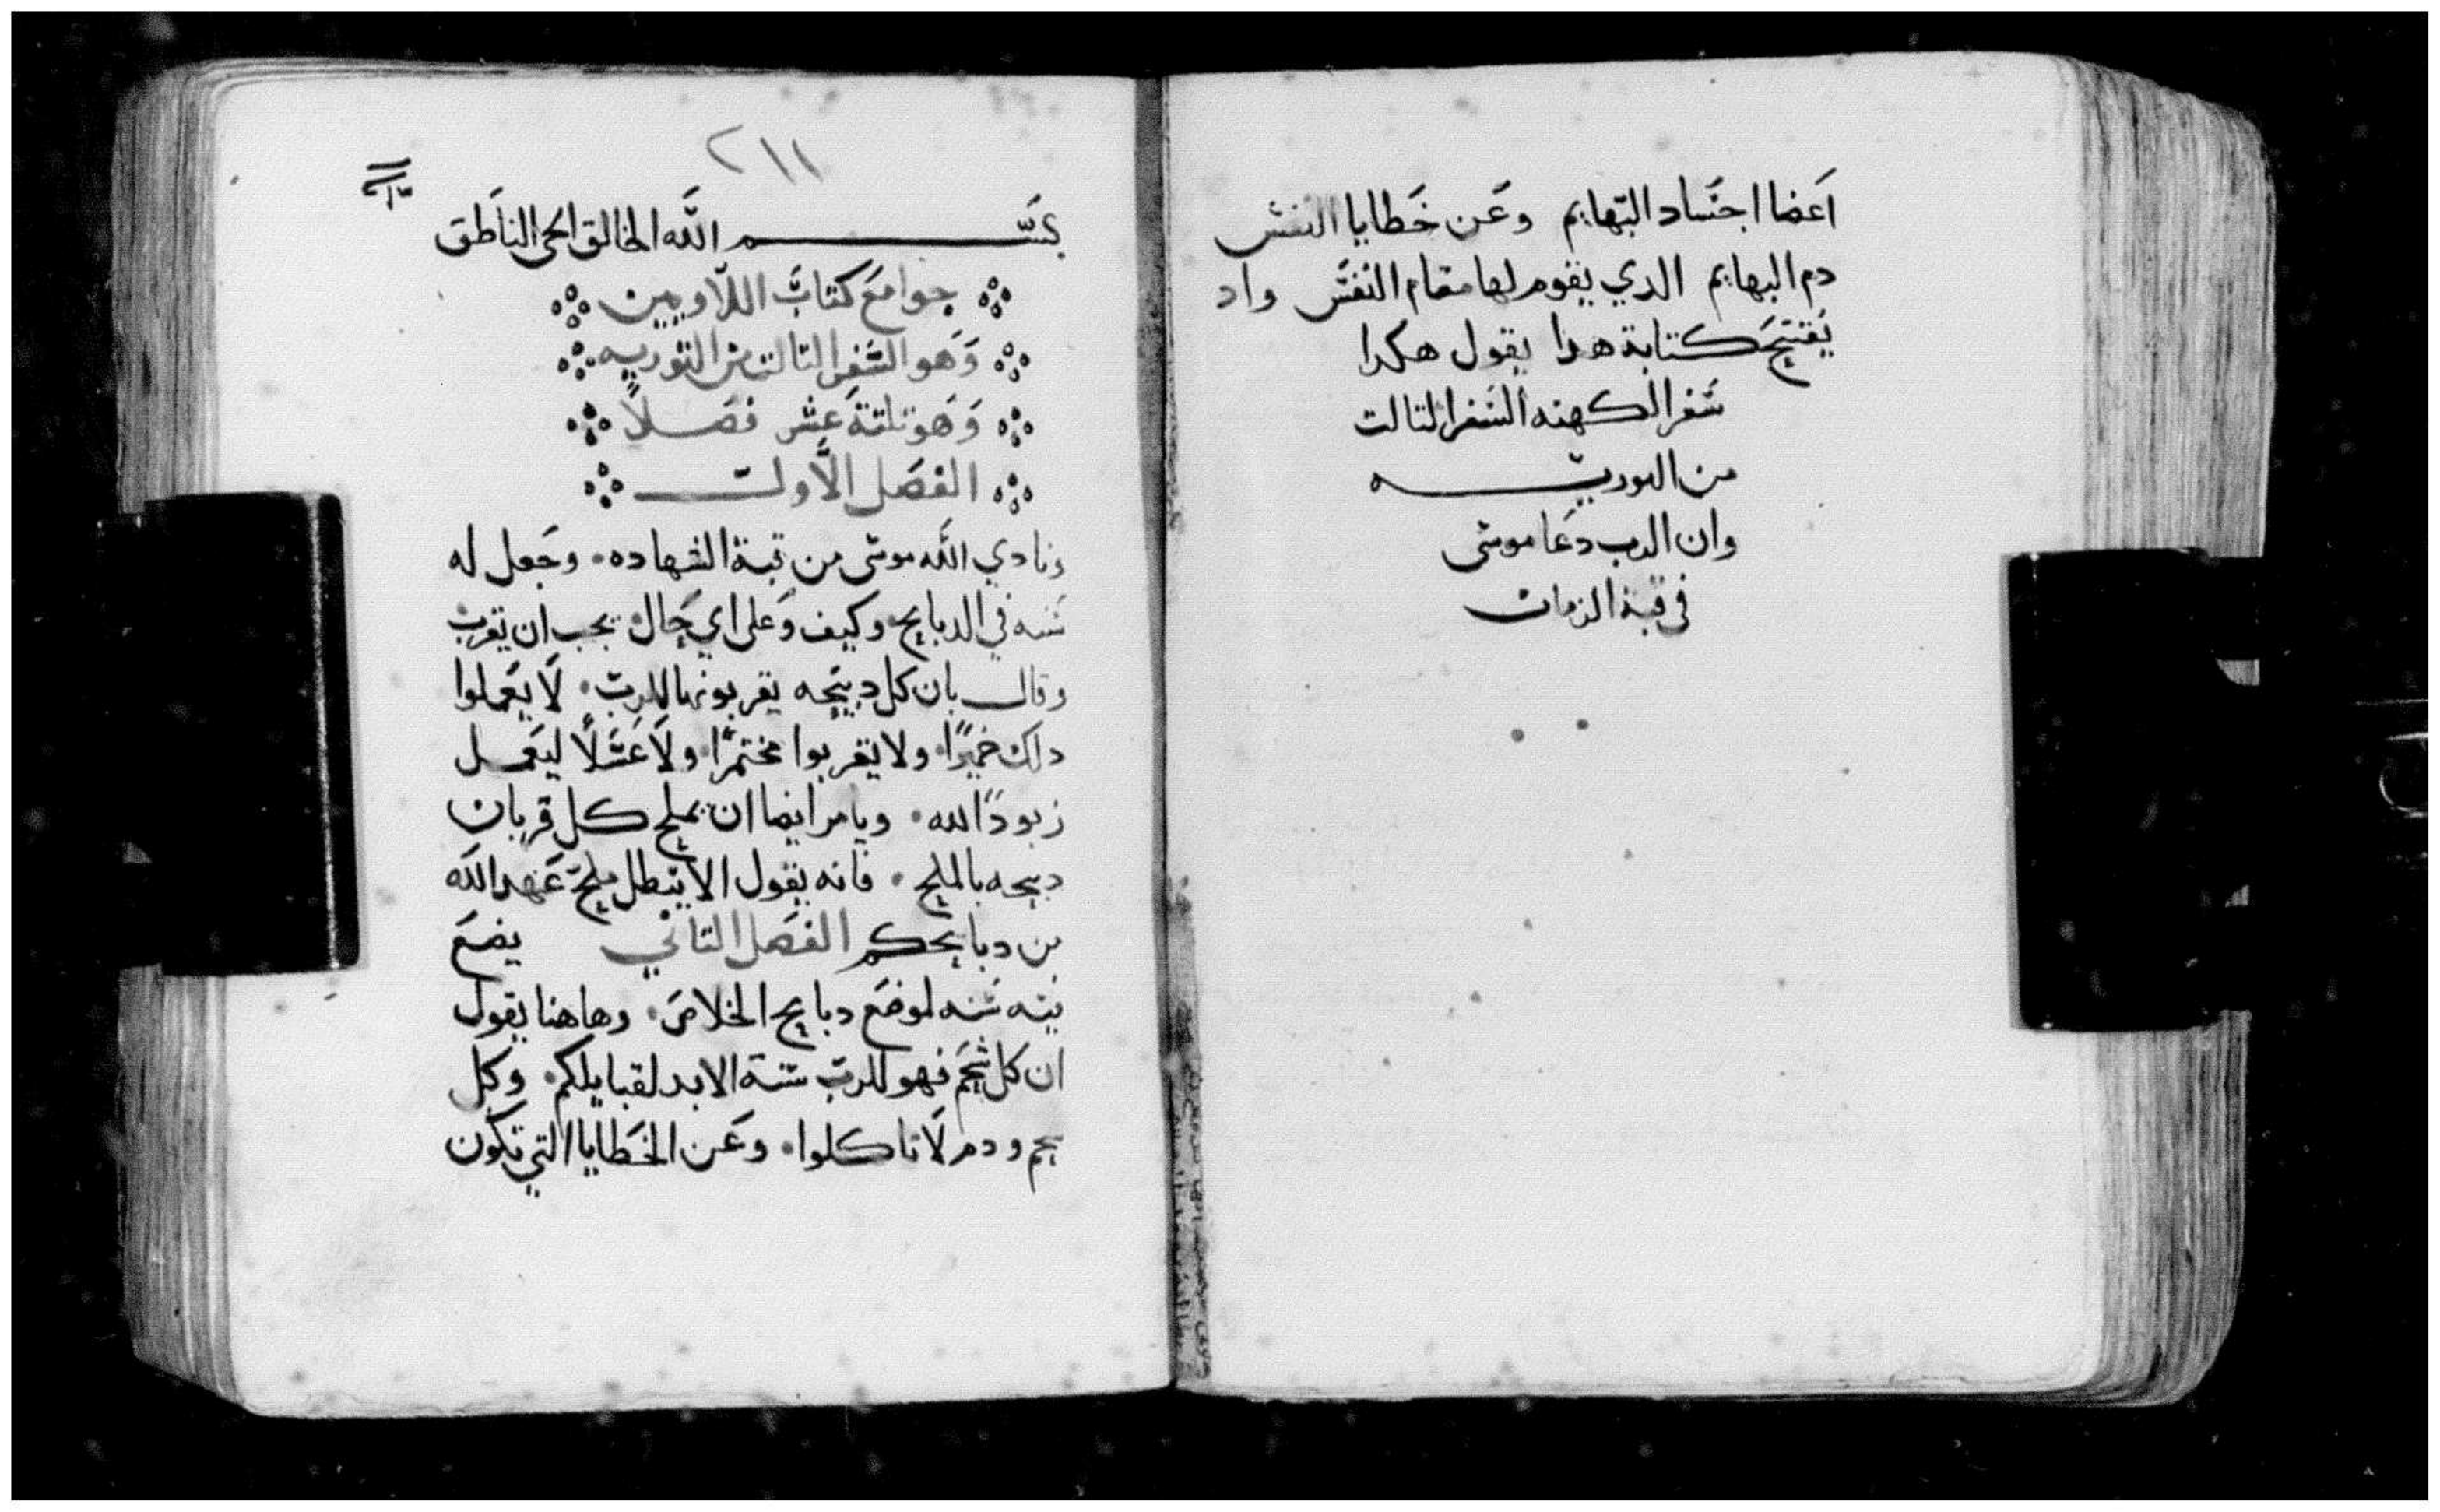 اعضا اجساد البهايم وعن خطايا النفس
دم البهايم الدي يقوم لها مقام النفس واد
يفتتح كتابة هدا يقول هكدا
سفر الكهنه السفر التالت
من التوريه
وان الرب دعا موسى
في قبة الزمان
٢١١
بسم الله الخالق الحي الناطق
جوامع كتاب اللاويين
وهو السفر التالت من التوريه
وهو تلتة عشر فصلاً
الفصل الاول
ونادي الله موسى من قبة الشهاده وجعل له
سنه في الدبايح وكيف وعلى اي حال يجب ان تقرب
وقال بان كل دبيحه يقربونها للرب لا يعملوا
دلك خميرًا ولا يقربوا مختمرًا ولا عسلاً ليعمل
زبودًا لله ويامر ايضا ان يملح كل قربان
دبيحه بالملح فانه يقول الا يبطل ملح عهد الله
من دبايحكم الفصل التاني يضع
فيه سنه لموضع دبايح الخلاص وهاهنا يقول
ان كل شحم فهو للرب سنة الابد لقبايلكم وكل
شحم ودم لا تاكلوا وعن الخطايا التي تكون